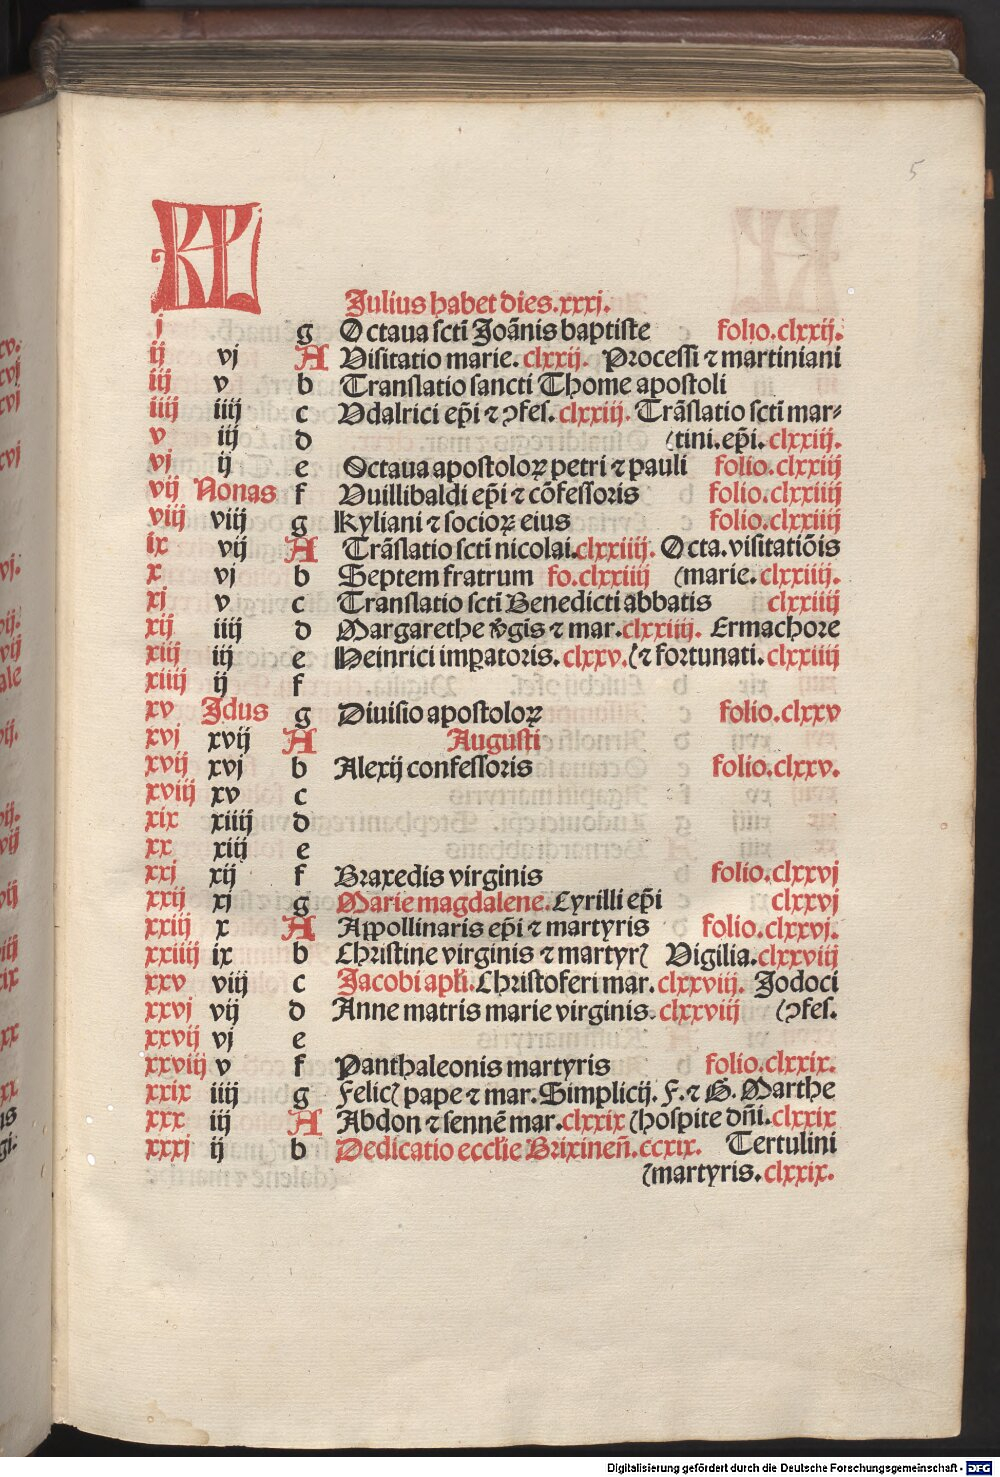 5
KL
Julius habet dies.xxxj.
j g Octaua scti Joānis baptiste folio.clxxij.
ij vj A Visitatio marie. clxxij. Processi ⁊ martiniani
iij v b Translatio sancti Thome apostoli
iiij iiij c Vdalrici ep̄i ⁊ ꝯfes. clxxiij. Trāslatio scti mar⸗
v iij d (tini.ep̄i.clxxiij.
vj ij e Octaua apostoloꝝ petri ⁊ pauli folio.clxxiij
vij Nonas f Vuillibaldi ep̄i ⁊ cōfessoris folio.clxxiiij
viij viij g Kyliani ⁊ socioꝝ eius folio.clxxiiij
ix vij A Trāslatio scti nicolai.clxxiiij. Octa.visitatiōis
x vj b Septem fratrum fo.clxxiiij (marie.clxxiiij.
xj v c Translatio scti Benedicti abbatis clxxiiij
xij iiij d Margarethe v̄gis ⁊ mar.clxxiiij. Ermachore
xiij iij e Heinrici imꝑatoris. clxxv.(⁊ fortunati.clxxiiij
xiiij ij f
xv Jdus g Diuisio apostoloꝝ folio.clxxv
xvj xvij A Augusti
xvij xvj b Alexij confessoris folio.clxxv.
xviij xv c
xix xiiij d
xx xiij e
xxj xij f Braxedis virginis folio.clxxvj
xxij xj g Marie magdalene.Cyrilli ep̄i clxxvj
xxiij x A Appollinaris ep̄i ⁊ martyris folio.clxxvj.
xxiiij ix b Christine virginis ⁊ martyrꝭ Vigilia.clxxviij
xxv viij c Jacobi apl̄i.Christoferi mar. clxxviij. Jodoci
xxvj vij d Anne matris marie virginis.clxxviij (ꝯfes.
xxvij vj e
xxviij v f Panthaleonis martyris folio.clxxix.
xxix iiij g Felicꝭ pape ⁊ mar.Simplicij. F.⁊ B. Marthe
xxx iij A Abdon ⁊ sennē mar.clxxix (hospite dn̄i.clxxix
xxxj ij b Dedicatio eccl̄ie Brixineñ.ccxix. Tertulini
(martyris.clxxix.
Digitalisierung gefördert durch die Deutsche Forschungsgemeinschaft - DFG